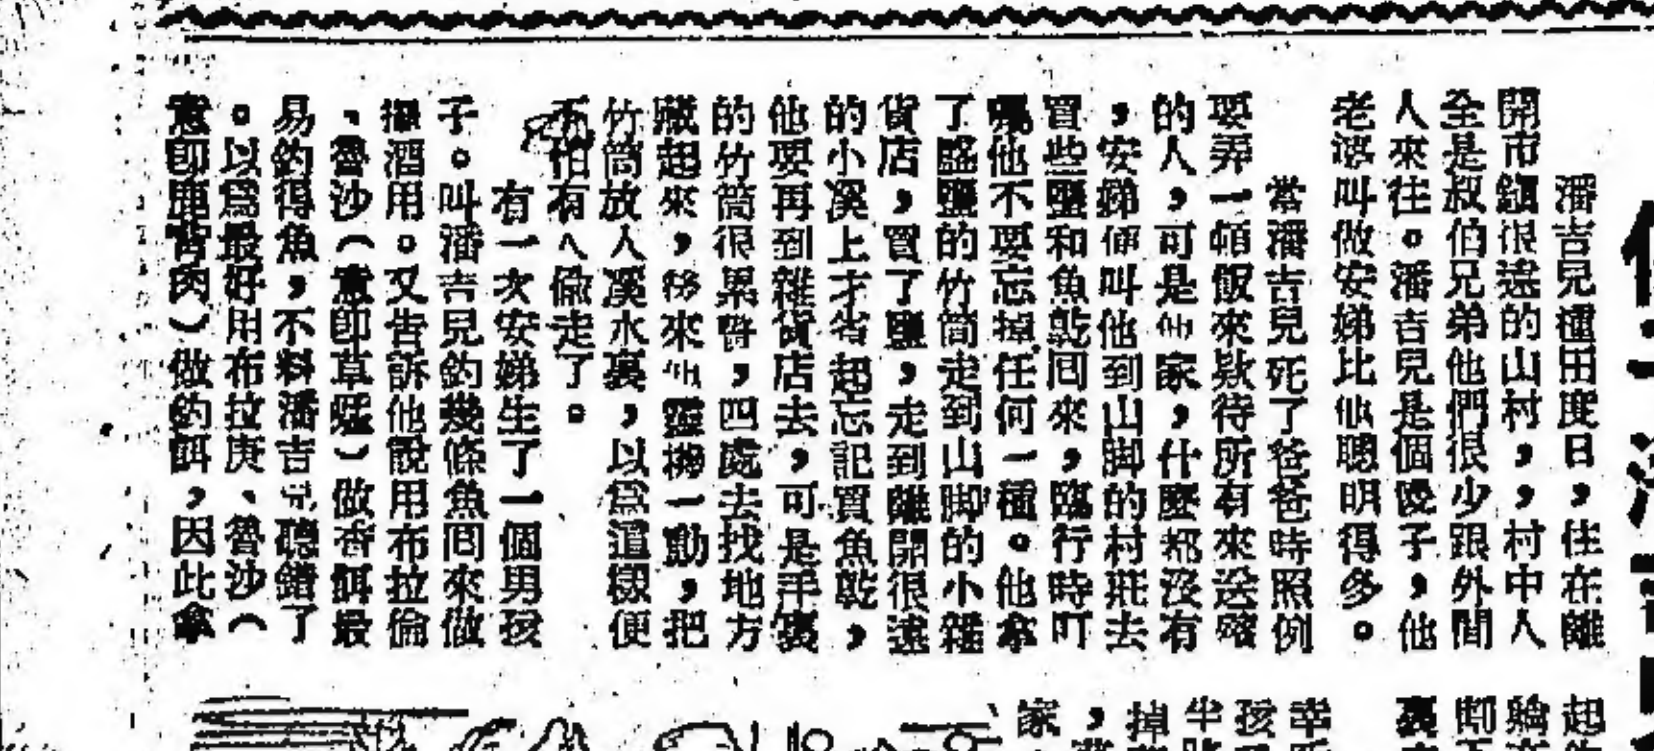 潘吉兒種田度日，住在離
開市鎮很遠的山村，，村中人
全是叔伯兄弟他們很少跟外間
人來往。潘吉兒是個傻子，他
老婆叫做安娣比他聰明得多。
當潘吉兒死了爸爸時照例
要弄一頓飯來欵待所有來送殯
的人，可是他家，什麼都沒有
，安娣便叫他到山脚的村莊去
買些鹽和魚乾囘來，臨行時叮
囑他不要忘掉任何一種。他拿
了盛鹽的竹筒走到山脚的小雜
貨店，買了鹽，走到離開很遠
的小溪上才省起忘記買魚乾，
他要再到雜貨店去，可是手裏
的竹筒很累贅，四處去找地方
藏起來，後來他靈機一動，把
竹筒放人溪水裏，以爲這樣便
不怕有人偸走了。
有一次安娣生了一個男孩
子。叫潘吉兒釣幾條魚囘來做
攝酒用。又告訴他說用布拉倫
、魯沙（意卽草蜢）做香餌最
易釣得魚，不料潘吉兒聽錯了
。以爲最好用布拉庚、魯沙（
意卽鹿肉）做釣餌，因此拿
起
裏
幸
孩
半
掉
，
家